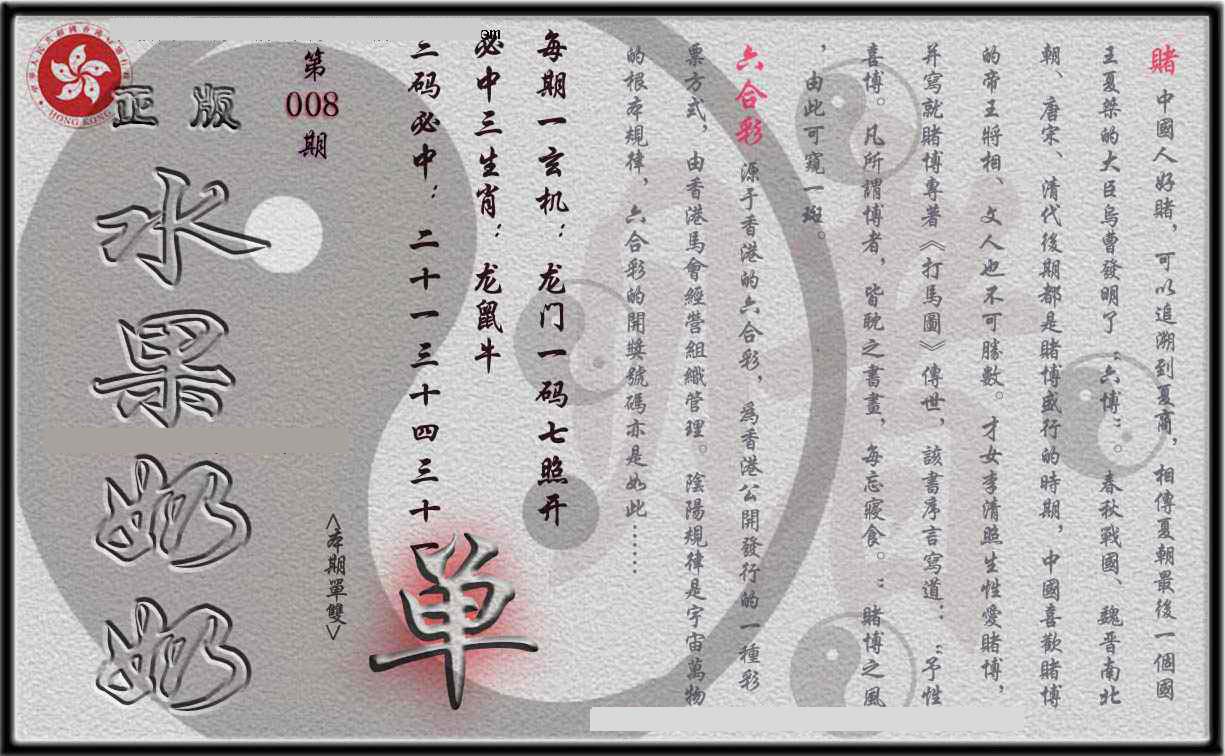 賭 中國人好賭，可以追溯到夏商，相傳夏朝最後一個國
王夏桀的大臣烏曹發明了“六博”。春秋戰國、魏晋南北
朝、唐宋、清代後期都是賭博盛行的時期，中國喜歡賭博
的帝王將相、文人也不可勝數。才女李清照生性愛賭博，
并寫就賭博專著《打馬圖》傳世，該書序言寫道：“予性
喜博。凡所謂博者，皆耽之書畫，每忘寢食。”賭博之風
，由此可窺一斑。
六合彩 源于香港的六合彩，爲香港公開發行的一種彩
票方式，由香港馬會經營組織管理。陰陽規律是宇宙萬物
的根本規律，六合彩的開獎號碼亦是如此……
每期一玄机：龙门一码七照开
必中三生肖：龙鼠牛
二码必中：二十一三十四三十一
om
单
<本期單雙>
第
008
期
正版
水果奶奶
HONG KONG